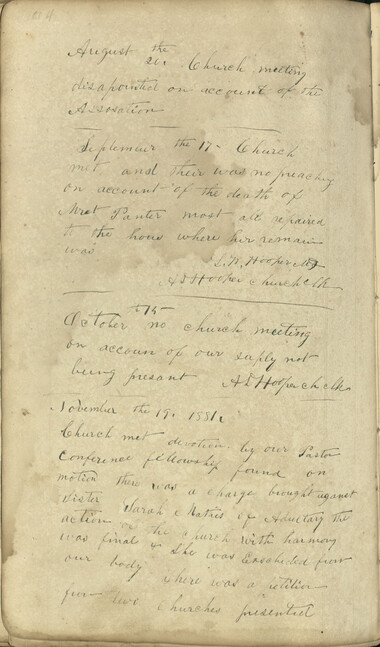 August the
20 Church meeting
disapointed on account of the
Assosation
Septemeur the 17- Church
met and their was no preaching
on account of the death of
Panter most all repaired
to the hous where her remain
was
Hooper
A D Hooper church clk
October 15 no church meeting
on accoun of our suply not
being presant A D Hooper Ch clk
November the 19. 1881
Church met devotion by our Pastor
Conference fellowship found on
motion there was a charge brought against
Sister Sarah Mathis of Adultary the
action of the church with harmony
was final & She was Excluded from
our body there was a petition
two Churches presented